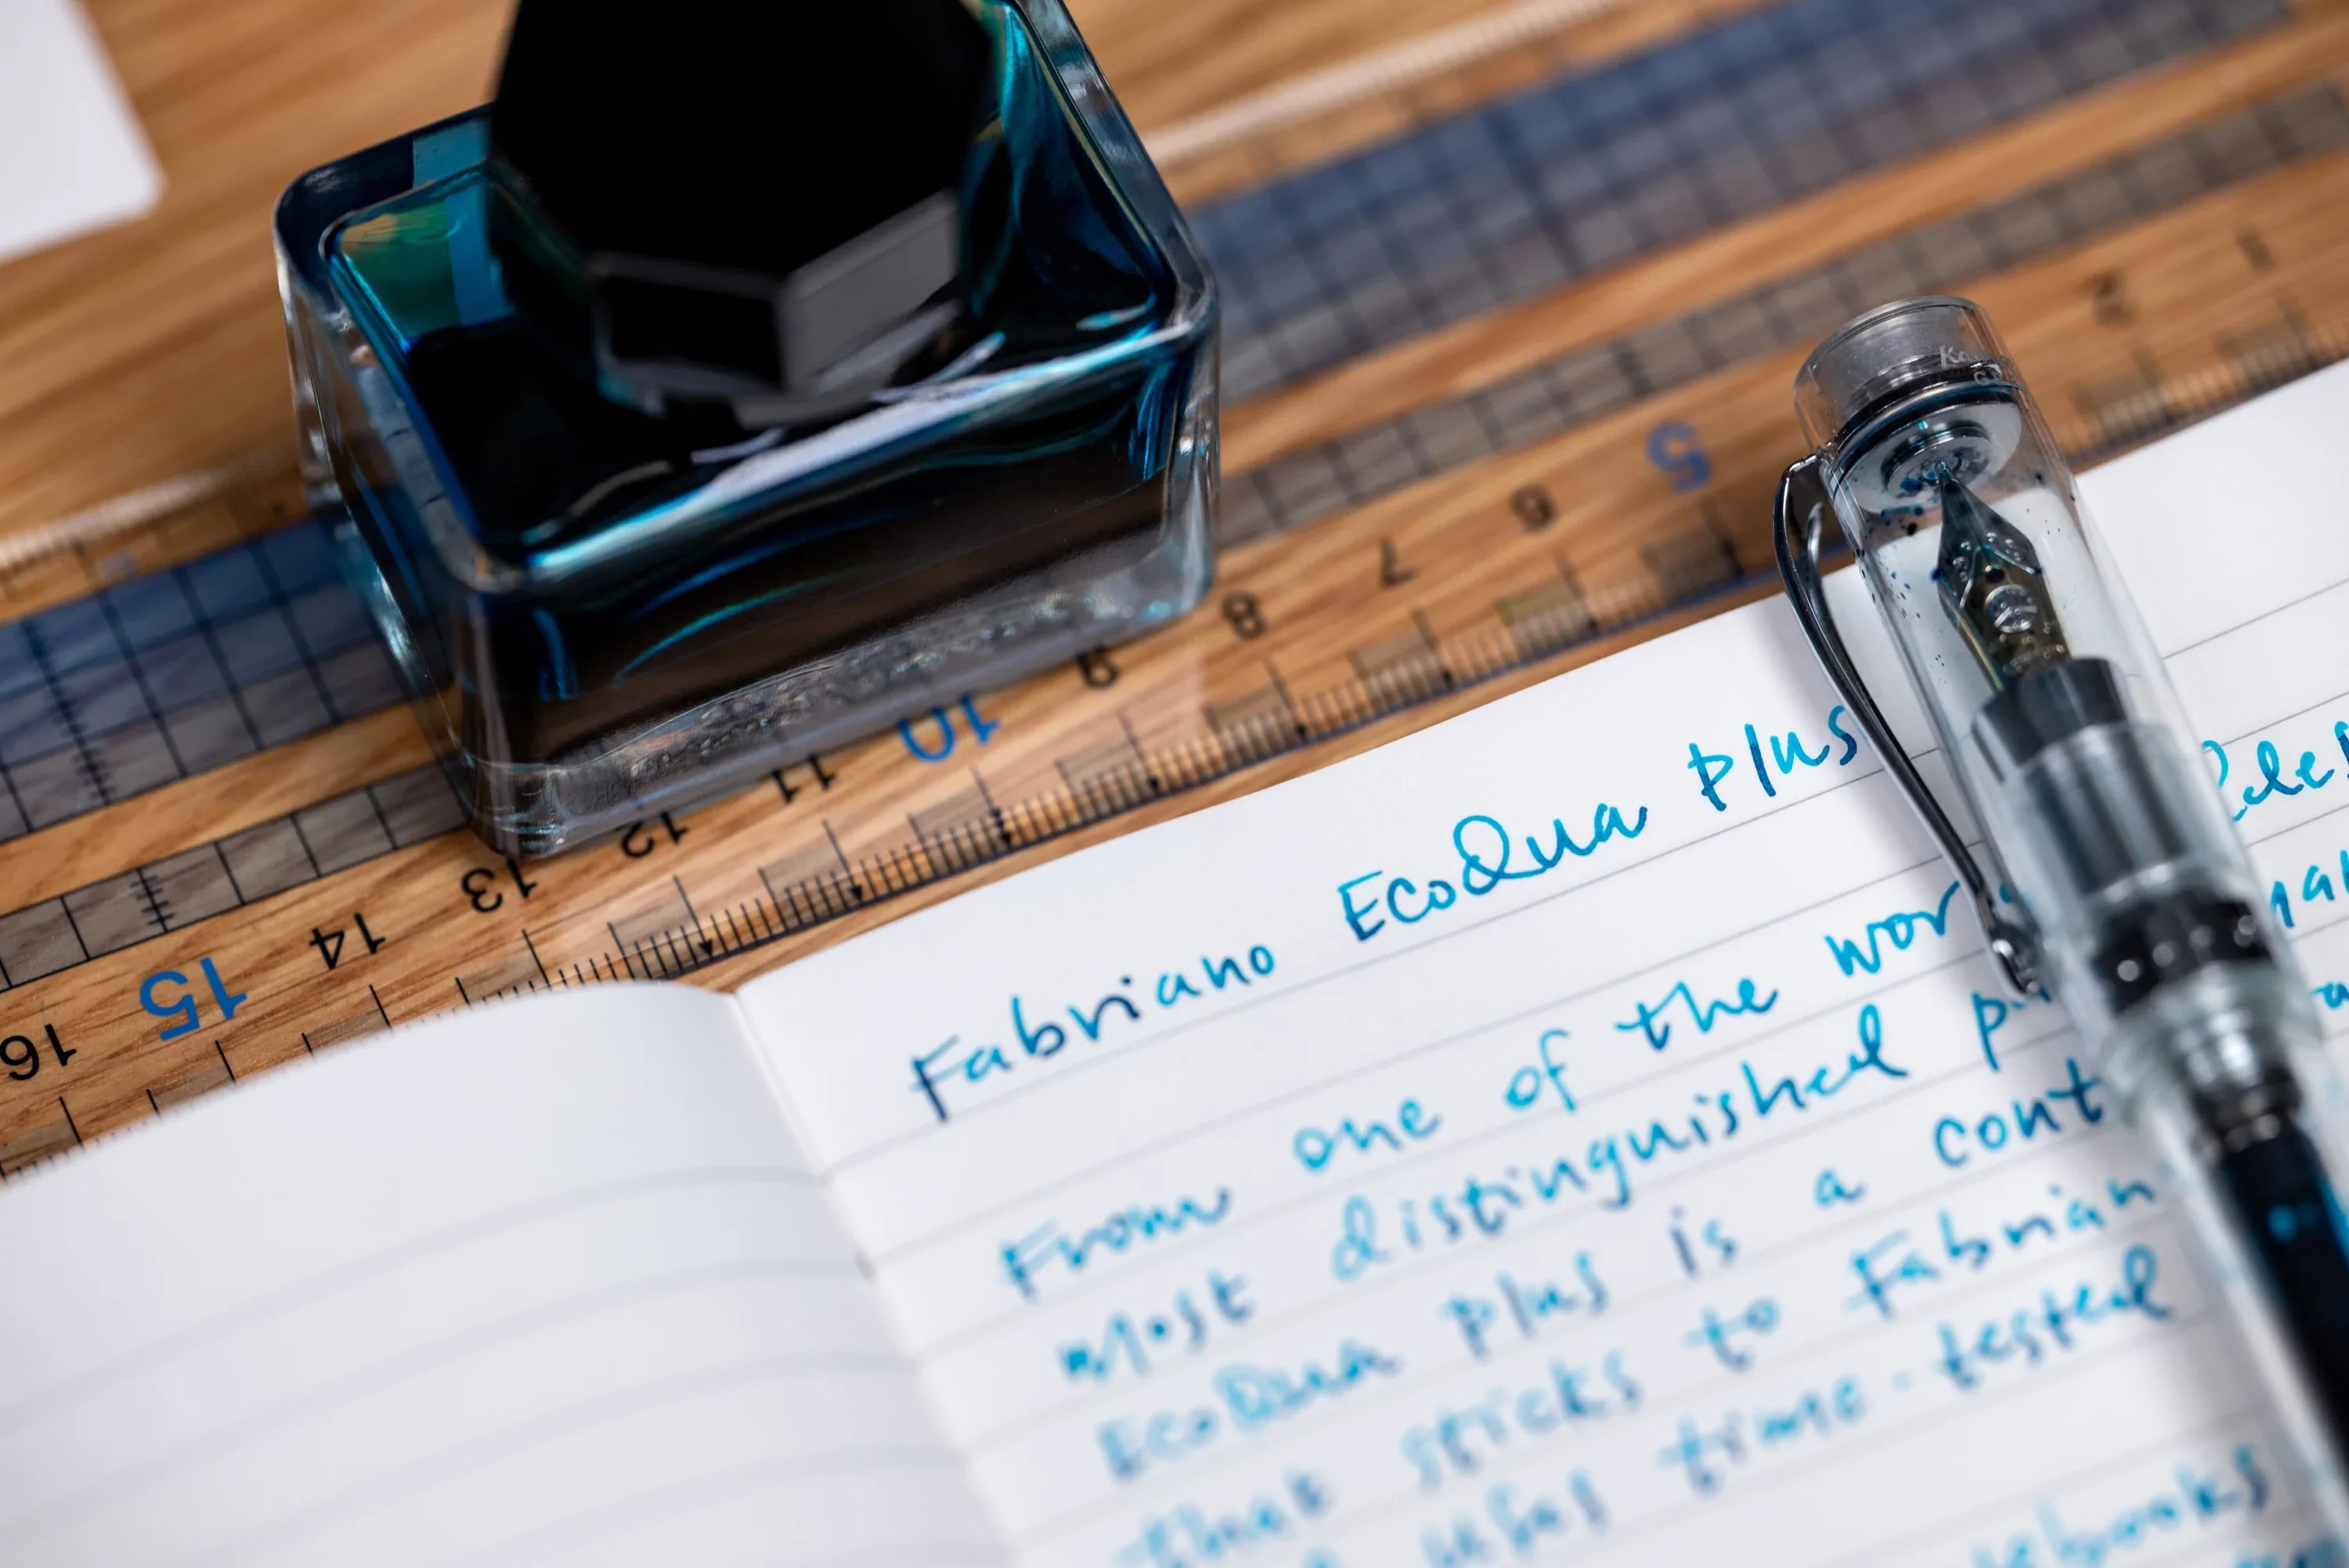 1
2
5
6
7
8
9
10
11
12
13
14
15
16
Fabriano EcoQua plus
From one of the
most distinguished
EcoQua plus is a
that sticks to
time-tested